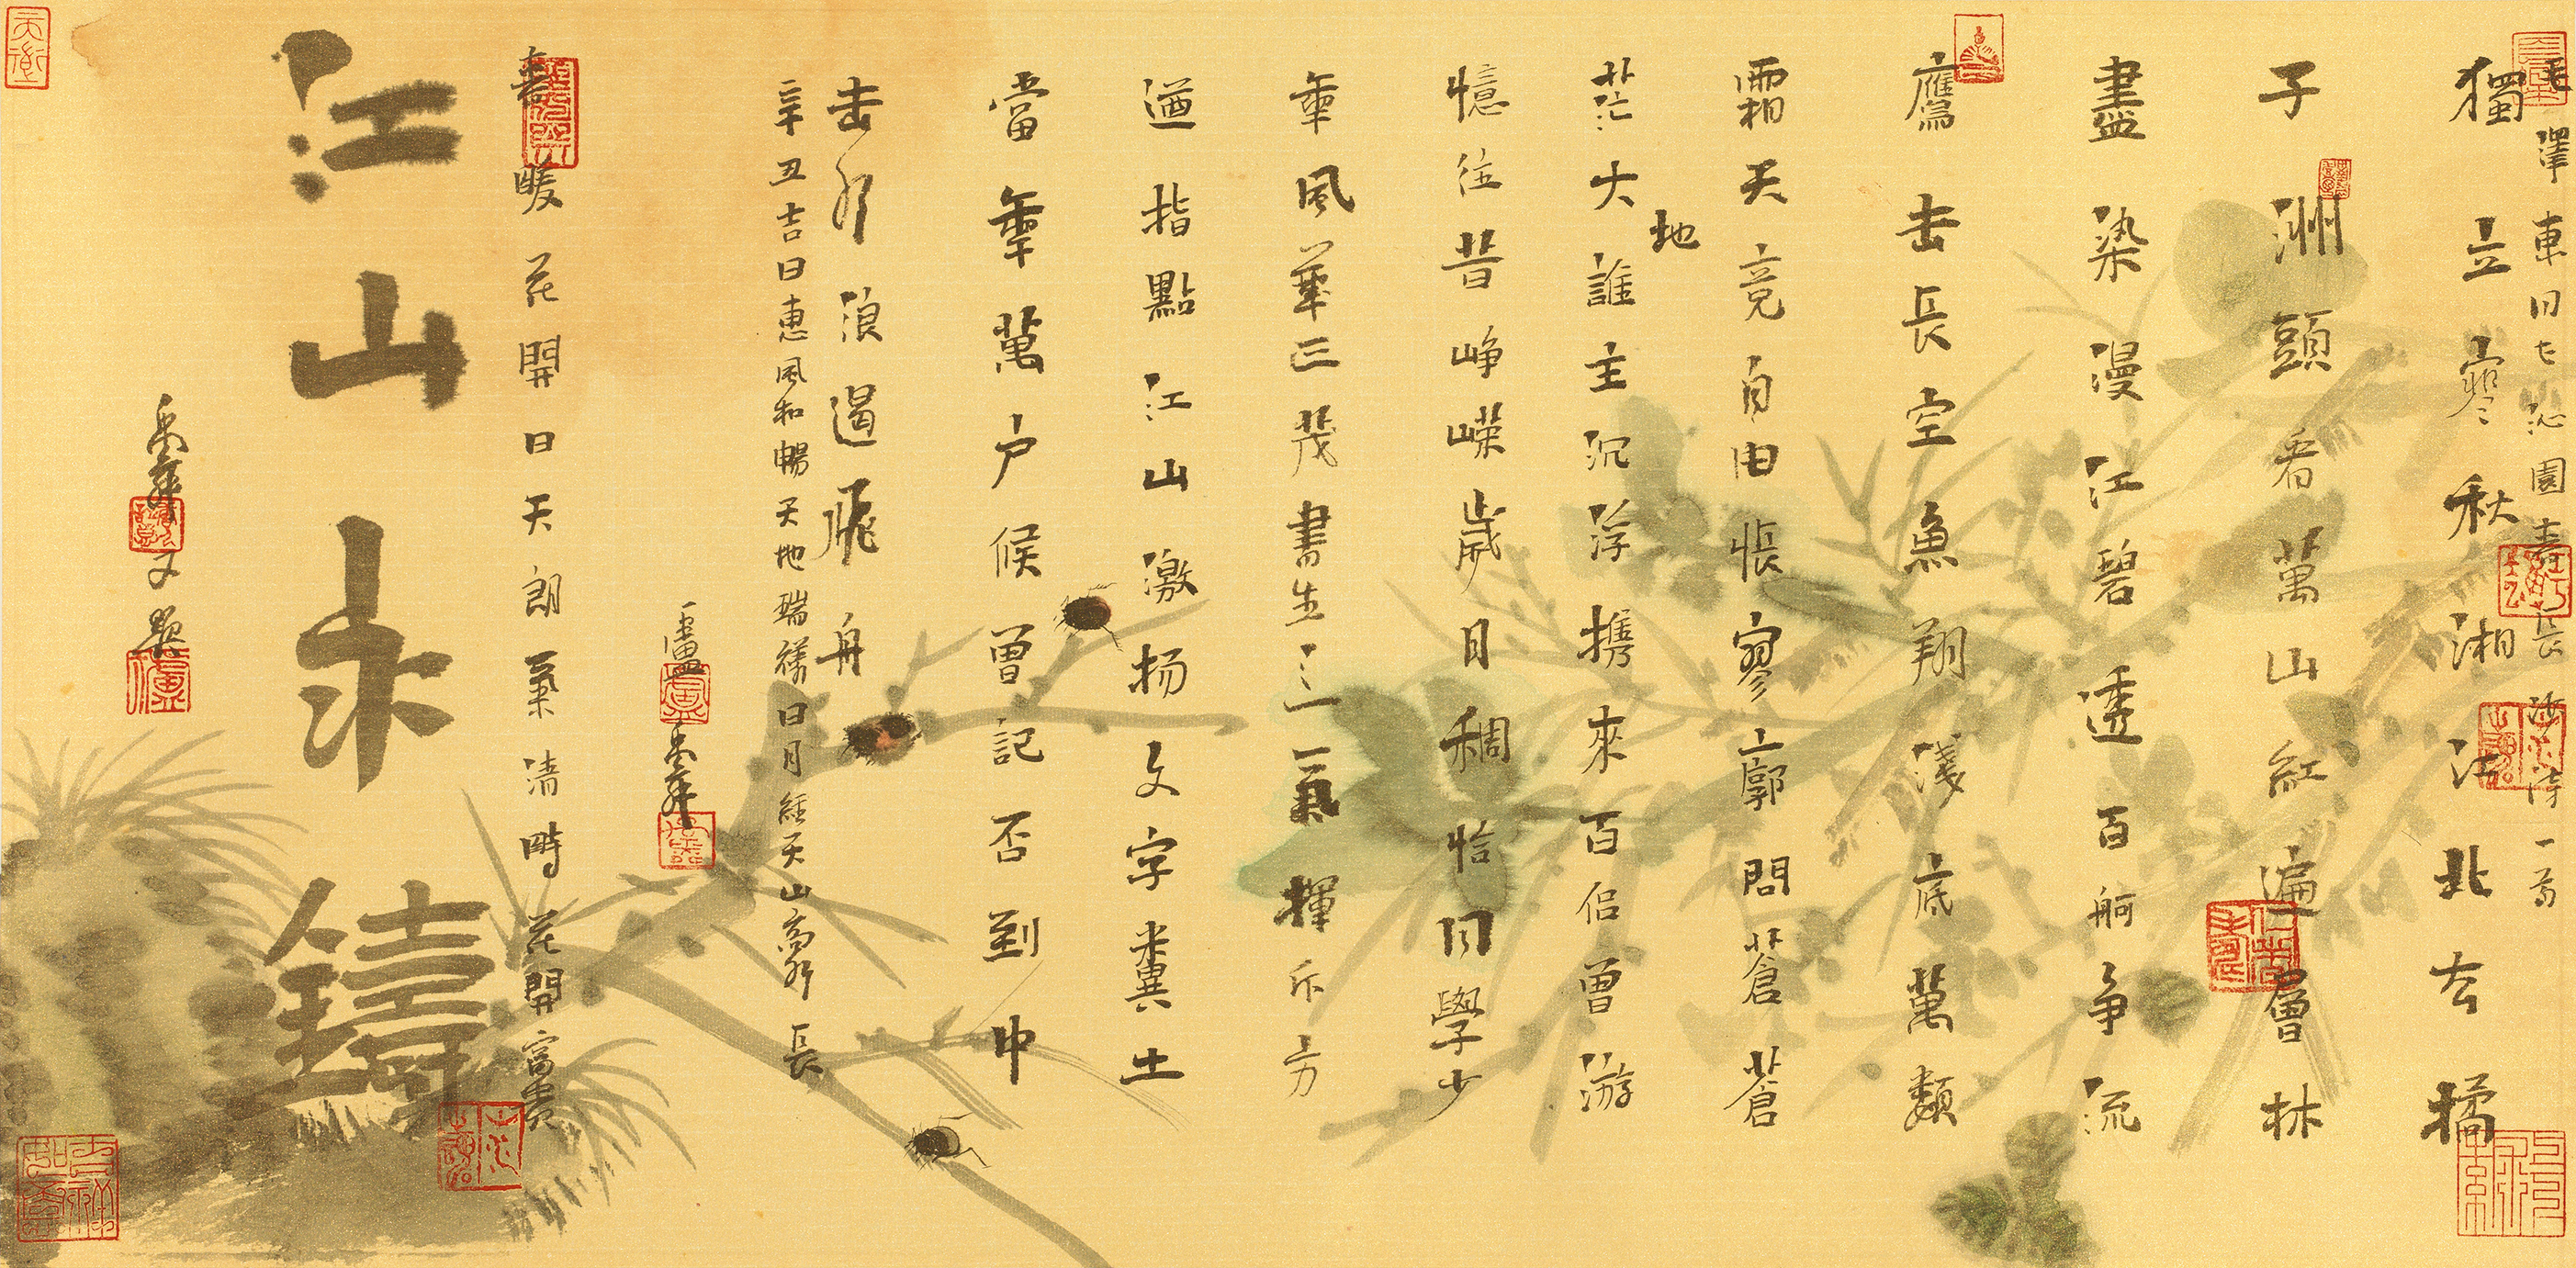 毛澤東同志沁園春長沙詩一首
獨立寒秋湘江北去橘
子洲頭看萬山紅遍層林
盡染漫江碧透百舸争流
鷹击長空魚翔淺底萬類
霜天竞自由悵寥廓問蒼蒼
茫大地誰主沉浮携來百侣曾游
憶往昔峥嵘歲月稠恰同學少
年風華正茂書生意氣揮斥方
遒指點江山激扬文字糞土
當年萬户候曾記否到中
击水浪遏飛舟
辛丑吉日惠風和暢天地瑞祥日月經天山高水長
盧禹舜
春暖花開日天朗氣清時花開富貴
江山永鑄
禹舜又題